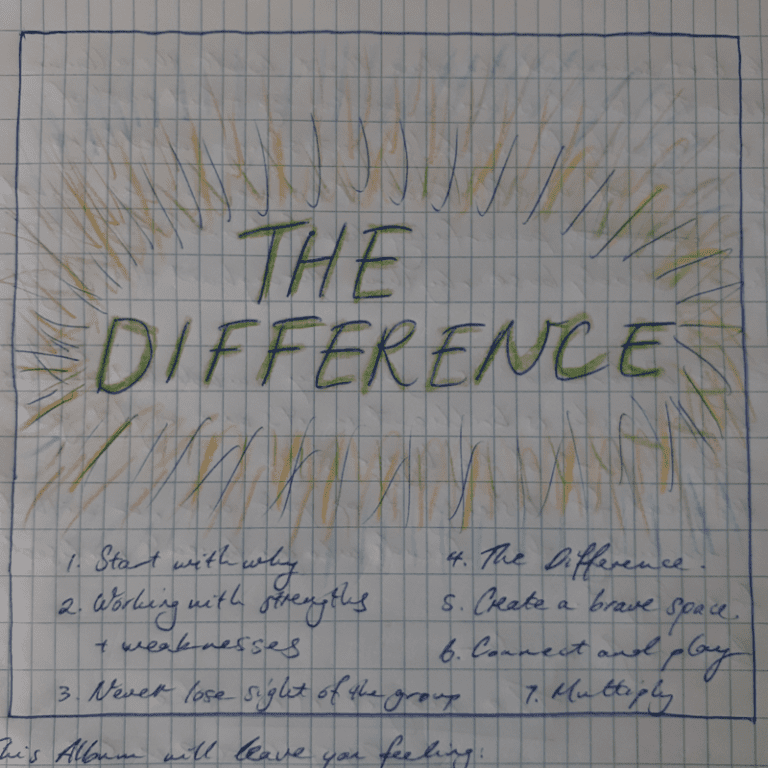 THE
DIFFERENCE
1. Start with why
2. Working with strengths
+ weaknesses
3. Never lose sight of the group
4. The Difference.
5. Create a brave space.
6. Connect and play
7. Multiply
This Album will leave you feeling: